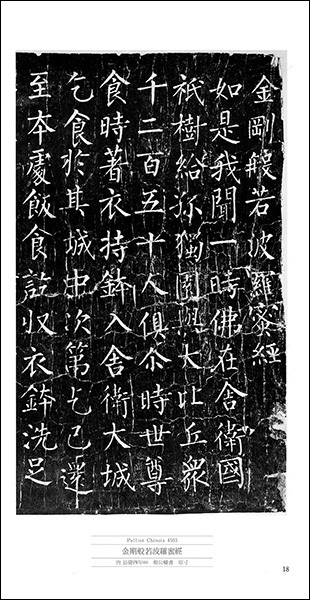 金剛般若波羅蜜經
如是我聞一時佛在舍衛國
祇樹給孤獨園與大比丘衆
千二百五十人俱尒時世尊
食時著衣持鉢入舍衛大城
乞食於其城中次第乞已還
至本處飯食訖収衣鉢洗足
Pelliot Chinois 4503
金剛般若波羅蜜經
唐 長慶四年 柳公權書 原寸
18